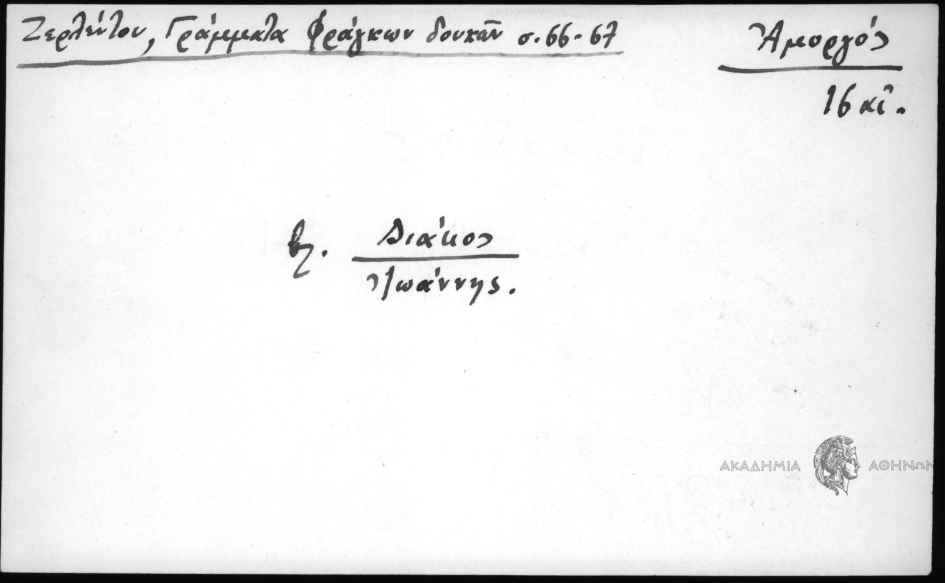 Ζερλέντου, Γράμματα Φράγκων δουκῶν σ. 66-67
Ἀμοργός
16 αἰ.
βλ. Διάκος
Ἰωάννης.
ΑΚΑΔΗΜΙΑ ΑΘΗΝΩΝ